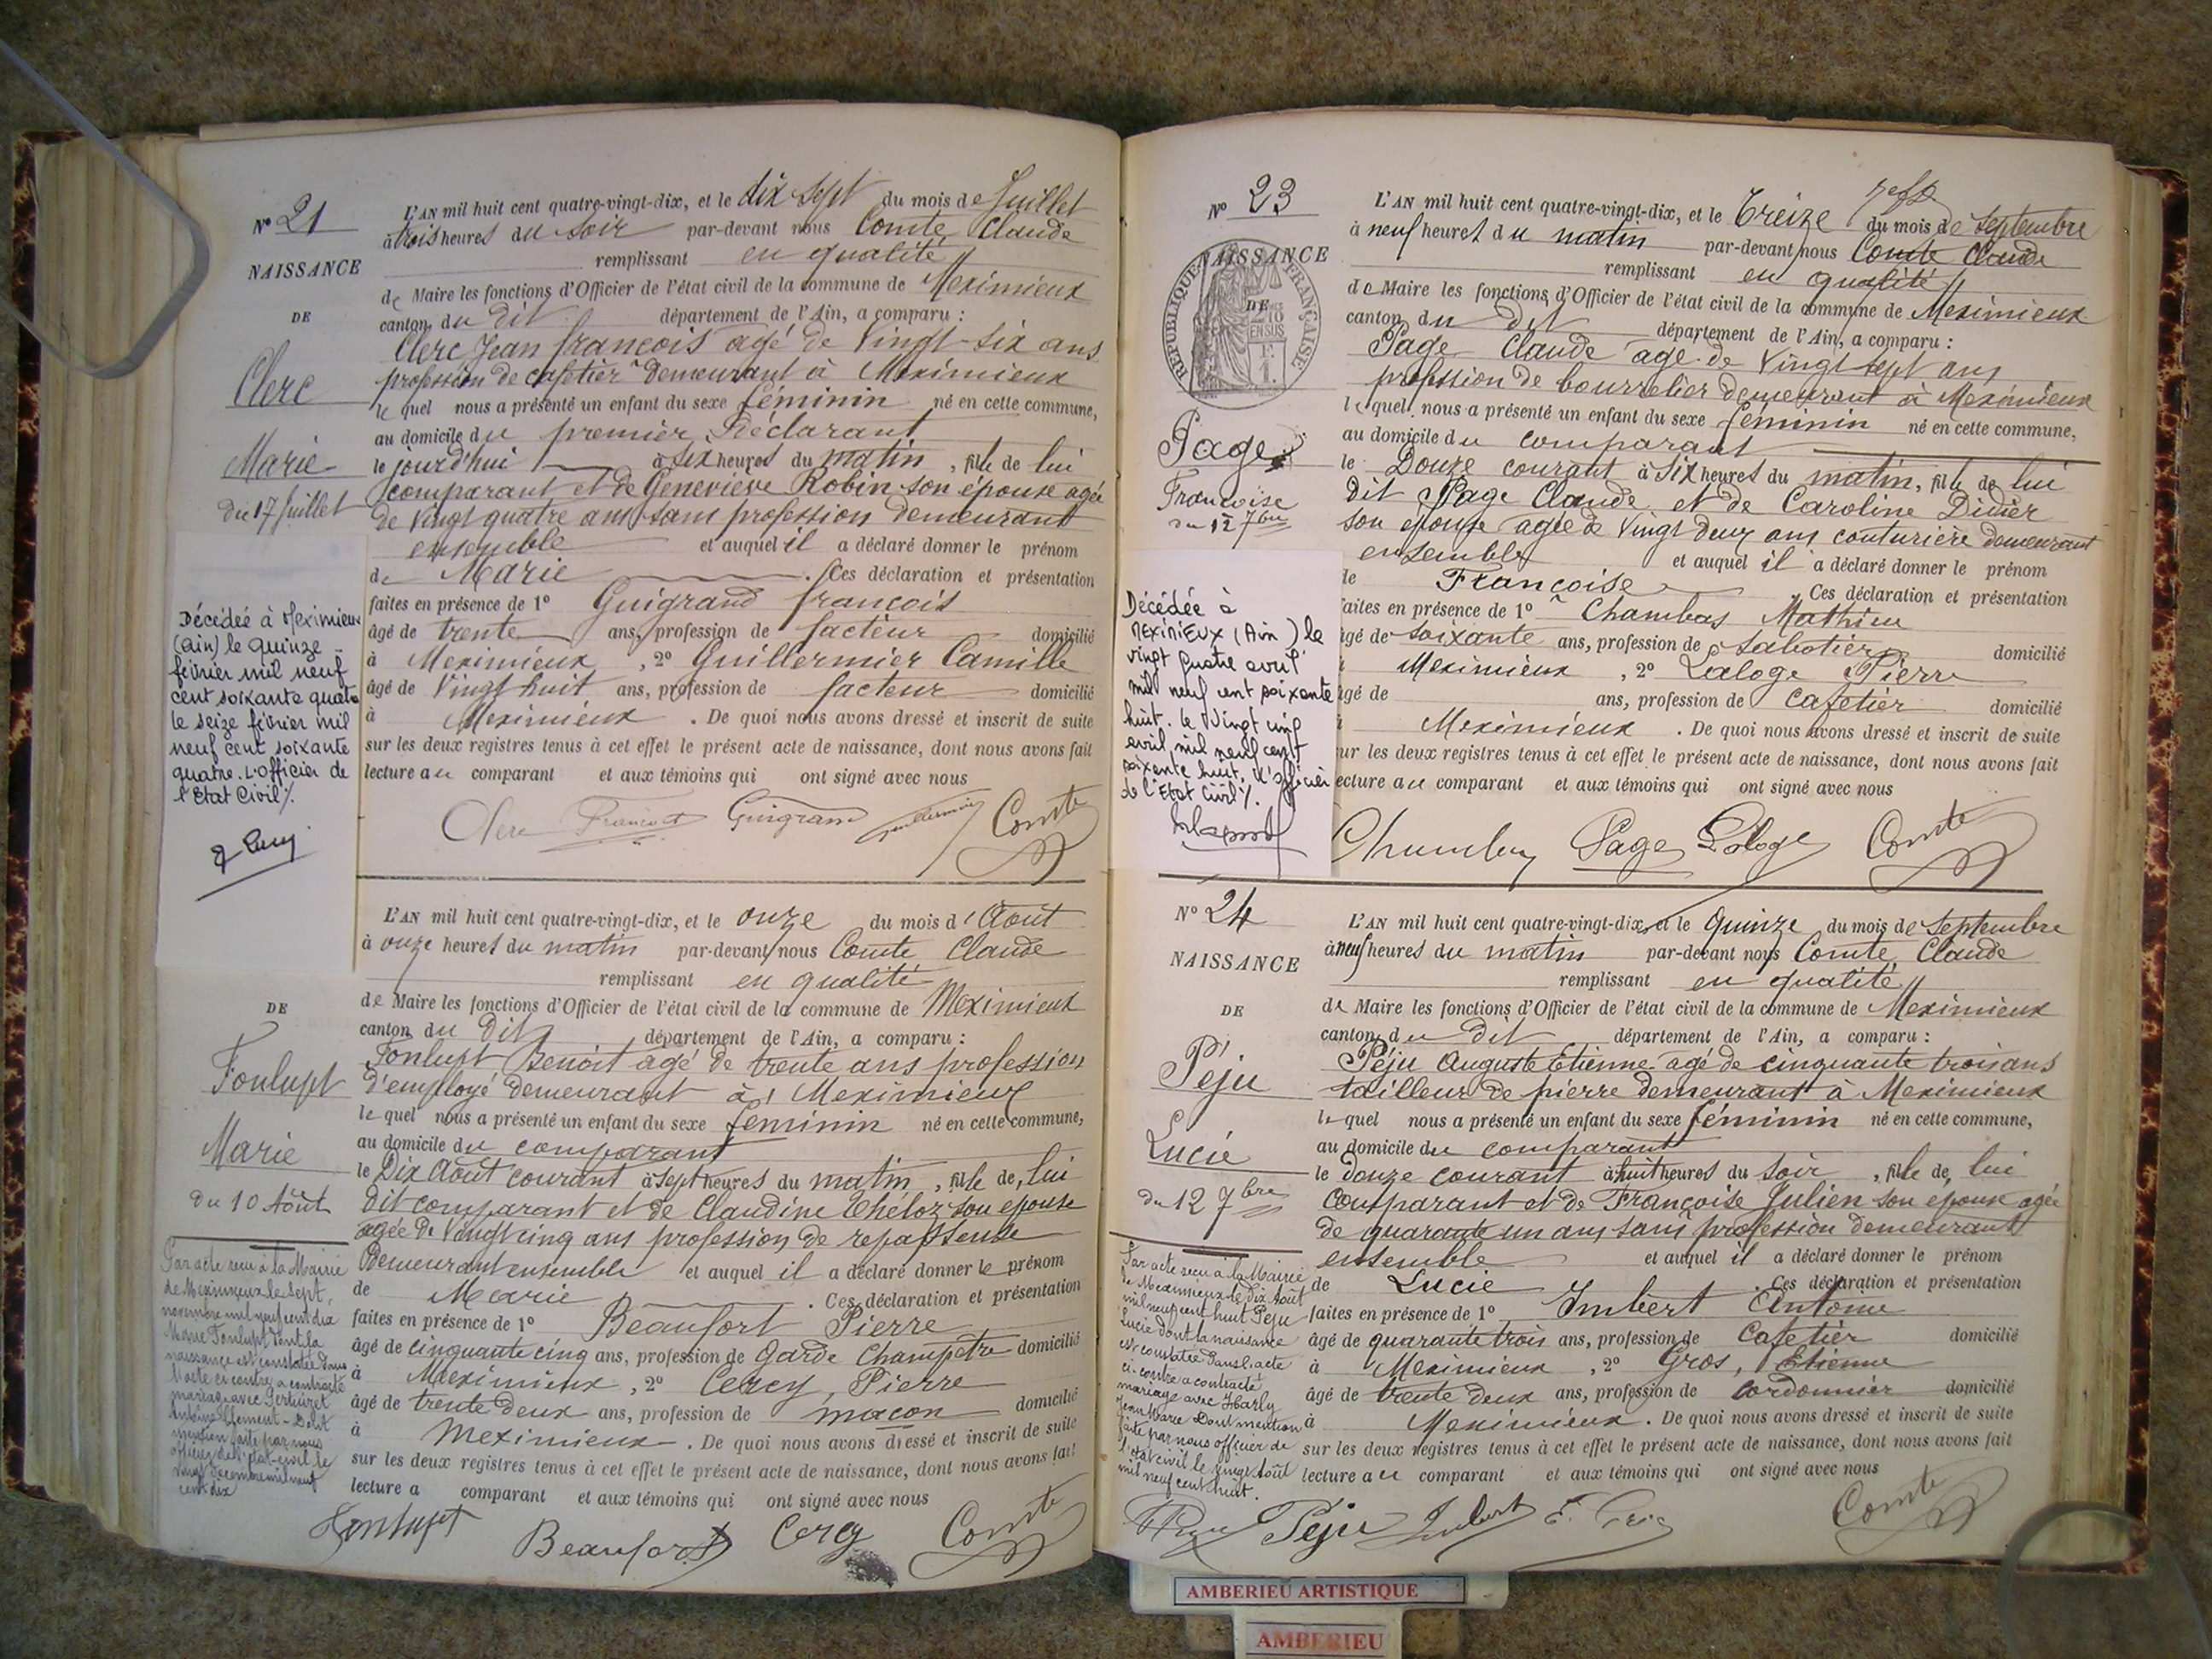 N° 21
NAISSANCE
DE
Clerc
Marie
Du 17 Juillet
Décédée à Meximieux
(Ain) le quinze
février mil neuf
cent soixante quatre
le seize février mil
neuf cent soixante
quatre. L'Officier de
l'Etat Civil %.
L'AN mil huit cent quatre-vingt-dix, et le dix sept du mois de Juillet
à trois heures du soir par-devant nous Comte Claude
remplissant en qualité
de Maire les fonctions d'Officier de l'état civil de la commune de Meximieux
canton du dit département de l'Ain, a comparu :
Clerc Jean françois agé de Vingt-six ans
profession de cafetier demeurant à Meximieux
le quel nous a présenté un enfant du sexe féminin né en cette commune,
au domicile du premier Déclarant
le jourd'hui à six heures du matin, fille de lui
comparant et de Geneviève Robin son épouse agée
de Vingt quatre ans sans profession demeurant
ensemble et auquel il a déclaré donner le prénom
de Marie . Ces déclaration et présentation
faites en présence de 1° Guigrand françois
âgé de trente ans, profession de facteur domicilié
à Meximieux, 2° Guillermier Camille
âgé de Vingt huit ans, profession de facteur domicilié
à Meximieux. De quoi nous avons dressé et inscrit de suite
sur les deux registres tenus à cet effet le présent acte de naissance, dont nous avons fait
lecture au comparant et aux témoins qui ont signé avec nous
Clerc François Guigrand Guillermier Comte
DE
Fonlupt
Marie
du 10 Août
Par acte reçu à la Mairie
de Meximieux le sept
novembre mil neuf cent dix
Marie Fonlupt dont la
naissance est constatée dans
l'acte ci contre a contracté
mariage avec
Antoine Clément - Dont
mention faite par nous
officier de l'état-civil le
vingt décembre mil neuf
cent dix
L'AN mil huit cent quatre-vingt-dix, et le onze du mois d'Août
à onze heures du matin par-devant nous Comte Claude
remplissant en qualité
de Maire les fonctions d'Officier de l'état civil de la commune de Meximieux
canton du dit département de l'Ain, a comparu :
Fonlupt Benoit agé de trente ans profession
d'employé demeurant à Meximieux
le quel nous a présenté un enfant du sexe féminin né en cette commune,
au domicile du comparant
le Dix Août courant à sept heures du matin, fille de lui
dit comparant et de Claudine Théloz son epouse
agée de Vingt cinq ans profession de repasseuse
Demeurant ensemble et auquel il a déclaré donner le prénom
de Marie . Ces déclaration et présentation
faites en présence de 1° Beaufort Pierre
âgé de cinquante cinq ans, profession de Garde Champêtre domicilié
à Meximieux, 2° Cercy, Pierre
âgé de trente deux ans, profession de maçon domicilié
à Meximieux. De quoi nous avons dressé et inscrit de suite
sur les deux registres tenus à cet effet le présent acte de naissance, dont nous avons fait
lecture a comparant et aux témoins qui ont signé avec nous
Fonlupt Beaufort Cercy Comte
N° 23
NAISSANCE
DE
REPUBLIQUE FRANÇAISE
Page
Françoise
du 12 7bre
Décédée à
MEXIMIEUX (Ain) le
vingt quatre avril
mil neuf cent soixante
huit. Le Vingt cinq
avril mil neuf cent
soixante huit. L'Officier
de l'Etat Civil %.
L'AN mil huit cent quatre-vingt-dix, et le Treize du mois de Septembre
à neuf heures du matin par-devant nous Comte Claude
remplissant en qualité
de Maire les fonctions d'Officier de l'état civil de la commune de Meximieux
canton du dit département de l'Ain, a comparu :
Page Claude agé de Vingt sept ans
profession de bourrelier demeurant à Meximieux
le quel nous a présenté un enfant du sexe féminin né en cette commune,
au domicile du comparant
le Douze courant à six heures du matin, fille de lui
dit Page Claude et de Caroline Didier
son épouse agée de Vingt deux ans couturière demeurant
ensemble et auquel il a déclaré donner le prénom
de Françoise . Ces déclaration et présentation
faites en présence de 1° Chambas Mathieu
âgé de soixante ans, profession de Sabotier domicilié
Meximieux, 2° Laloge Pierre
âgé de ans, profession de Cafetier domicilié
Meximieux. De quoi nous avons dressé et inscrit de suite
sur les deux registres tenus à cet effet le présent acte de naissance, dont nous avons fait
lecture au comparant et aux témoins qui ont signé avec nous
Page Comte
N° 24
NAISSANCE
DE
Péju
Lucie
du 12 7bre
Par acte reçu à la Mairie
de Meximieux le dix août
mil neuf cent huit Péju
Lucie dont la naissance
est constatée dans l'acte
ci-contre a contracté
mariage avec Harly
Jean Marie. Dont mention
faite par nous officier de
l'état civil le vingt août
mil neuf cent huit.
L'AN mil huit cent quatre-vingt-dix, et le quinze du mois de Septembre
à neuf heures du matin par-devant nous Comte Claude
remplissant en qualité
de Maire les fonctions d'Officier de l'état civil de la commune de Meximieux
canton du dit département de l'Ain, a comparu :
Péju Auguste Etienne agé de cinquante trois ans
tailleur de pierre demeurant à Meximieux
le quel nous a présenté un enfant du sexe féminin né en cette commune,
au domicile du comparant
le douze courant à huit heures du soir, fille de lui
comparant et de Françoise Julien son epouse agée
de quarante un ans sans profession demeurant
ensemble et auquel il a déclaré donner le prénom
de Lucie . Ces déclaration et présentation
faites en présence de 1° Imbert Antoine
âgé de quarante trois ans, profession de Cafetier domicilié
à Meximieux, 2° Gros, Etienne
âgé de trente deux ans, profession de cordonnier domicilié
à Meximieux. De quoi nous avons dressé et inscrit de suite
sur les deux registres tenus à cet effet le présent acte de naissance, dont nous avons fait
lecture au comparant et aux témoins qui ont signé avec nous
Péju Imbert E. Gros Comte
AMBERIEU ARTISTIQUE
AMBERIEU